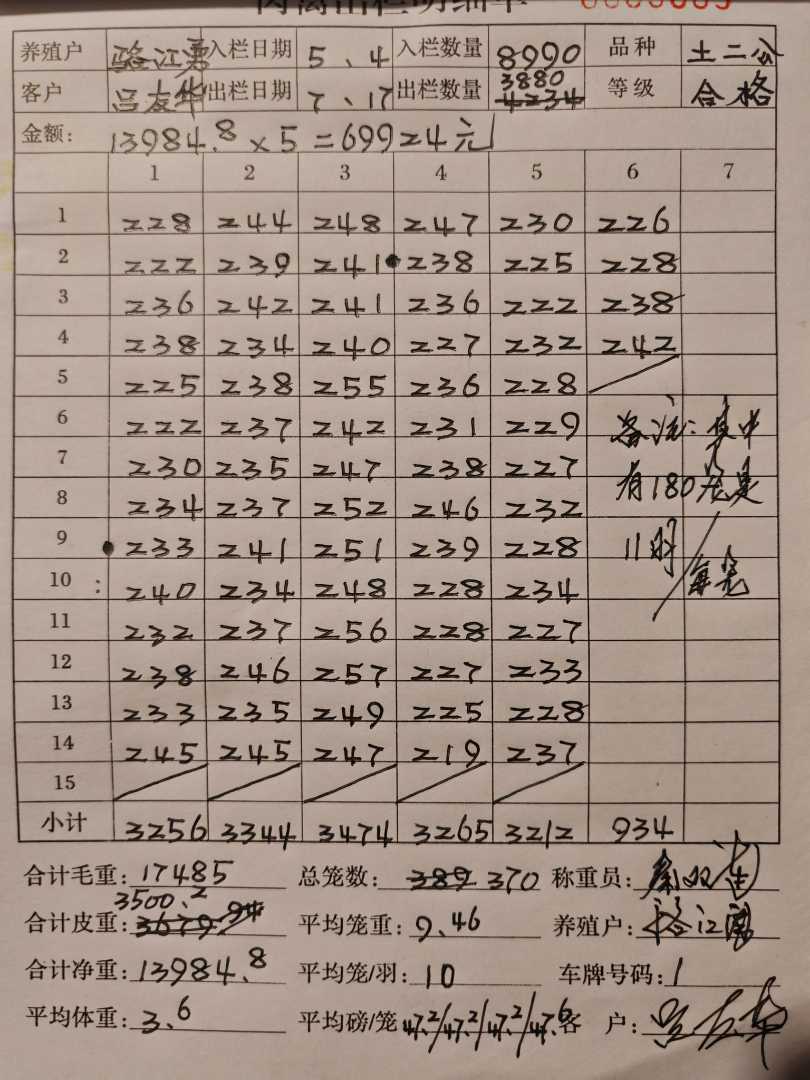 养殖户 骆江勇 入栏日期 5、4 入栏数量 8990 品种 土二公
客户 吕友华 出栏日期 7、17 出栏数量 3880 4234 等级 合格
金额: 13984.8×5=69924元
1 2 3 4 5 6 7
1 228 244 248 247 230 226
2 222 239 241 238 225 228
3 236 242 241 236 222 238
4 238 234 240 227 232 242
5 225 238 255 236 228
6 222 237 242 231 229 备注:其中
7 230 235 247 238 227 有180笼是
8 234 237 252 246 232
9 233 241 251 239 228 11羽/每笼
10 240 234 248 228 234
11 232 237 256 228 227
12 238 246 257 227 233
13 233 235 249 225 228
14 245 245 247 219 237
15
小计 3256 3344 3474 3265 3212 934
合计毛重: 17485 总笼数: 389 370 称重员:
合计皮重: 3500.2 3679.94 平均笼重: 9.46 养殖户: 骆江勇
合计净重: 13984.8 平均笼/羽: 10 车牌号码: 1
平均体重: 3.6 平均磅/笼 47.2/47.2/47.2/47.6 客户: 吕友华